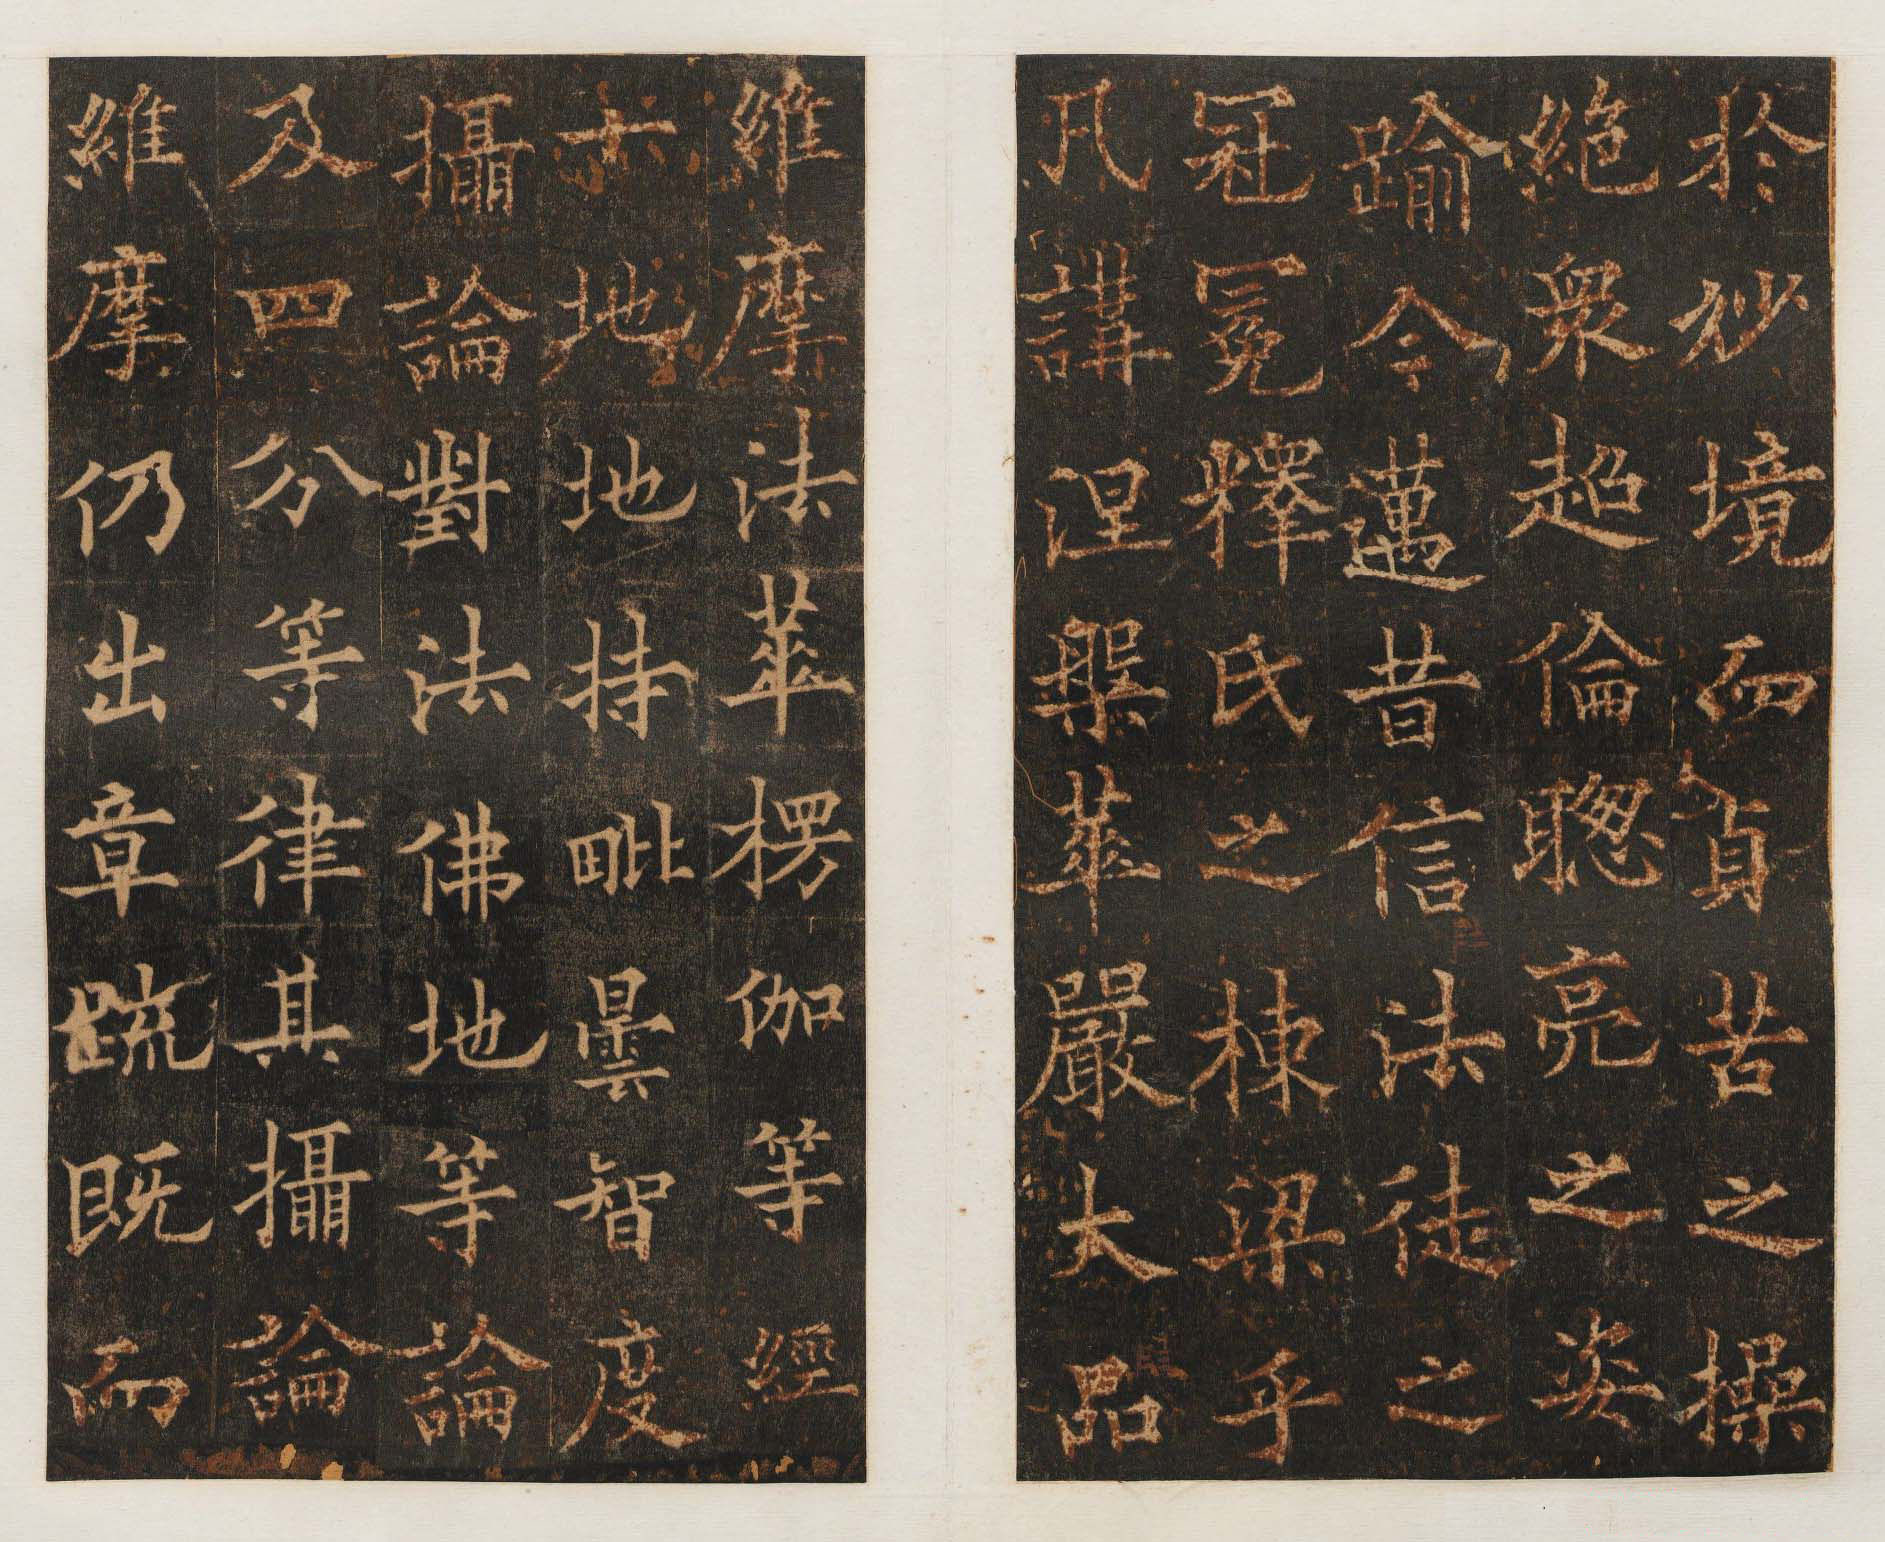 於妙境而貞苦之操
絶衆超倫聰亮之姿
踰今邁昔信法徒之
冠冕釋氏之棟梁乎
凡講涅槃華嚴大品
維摩法華楞伽等經
十地地持毗曇智度
攝論對法佛地等論
及四分等律其攝論
維摩仍出章疏既而